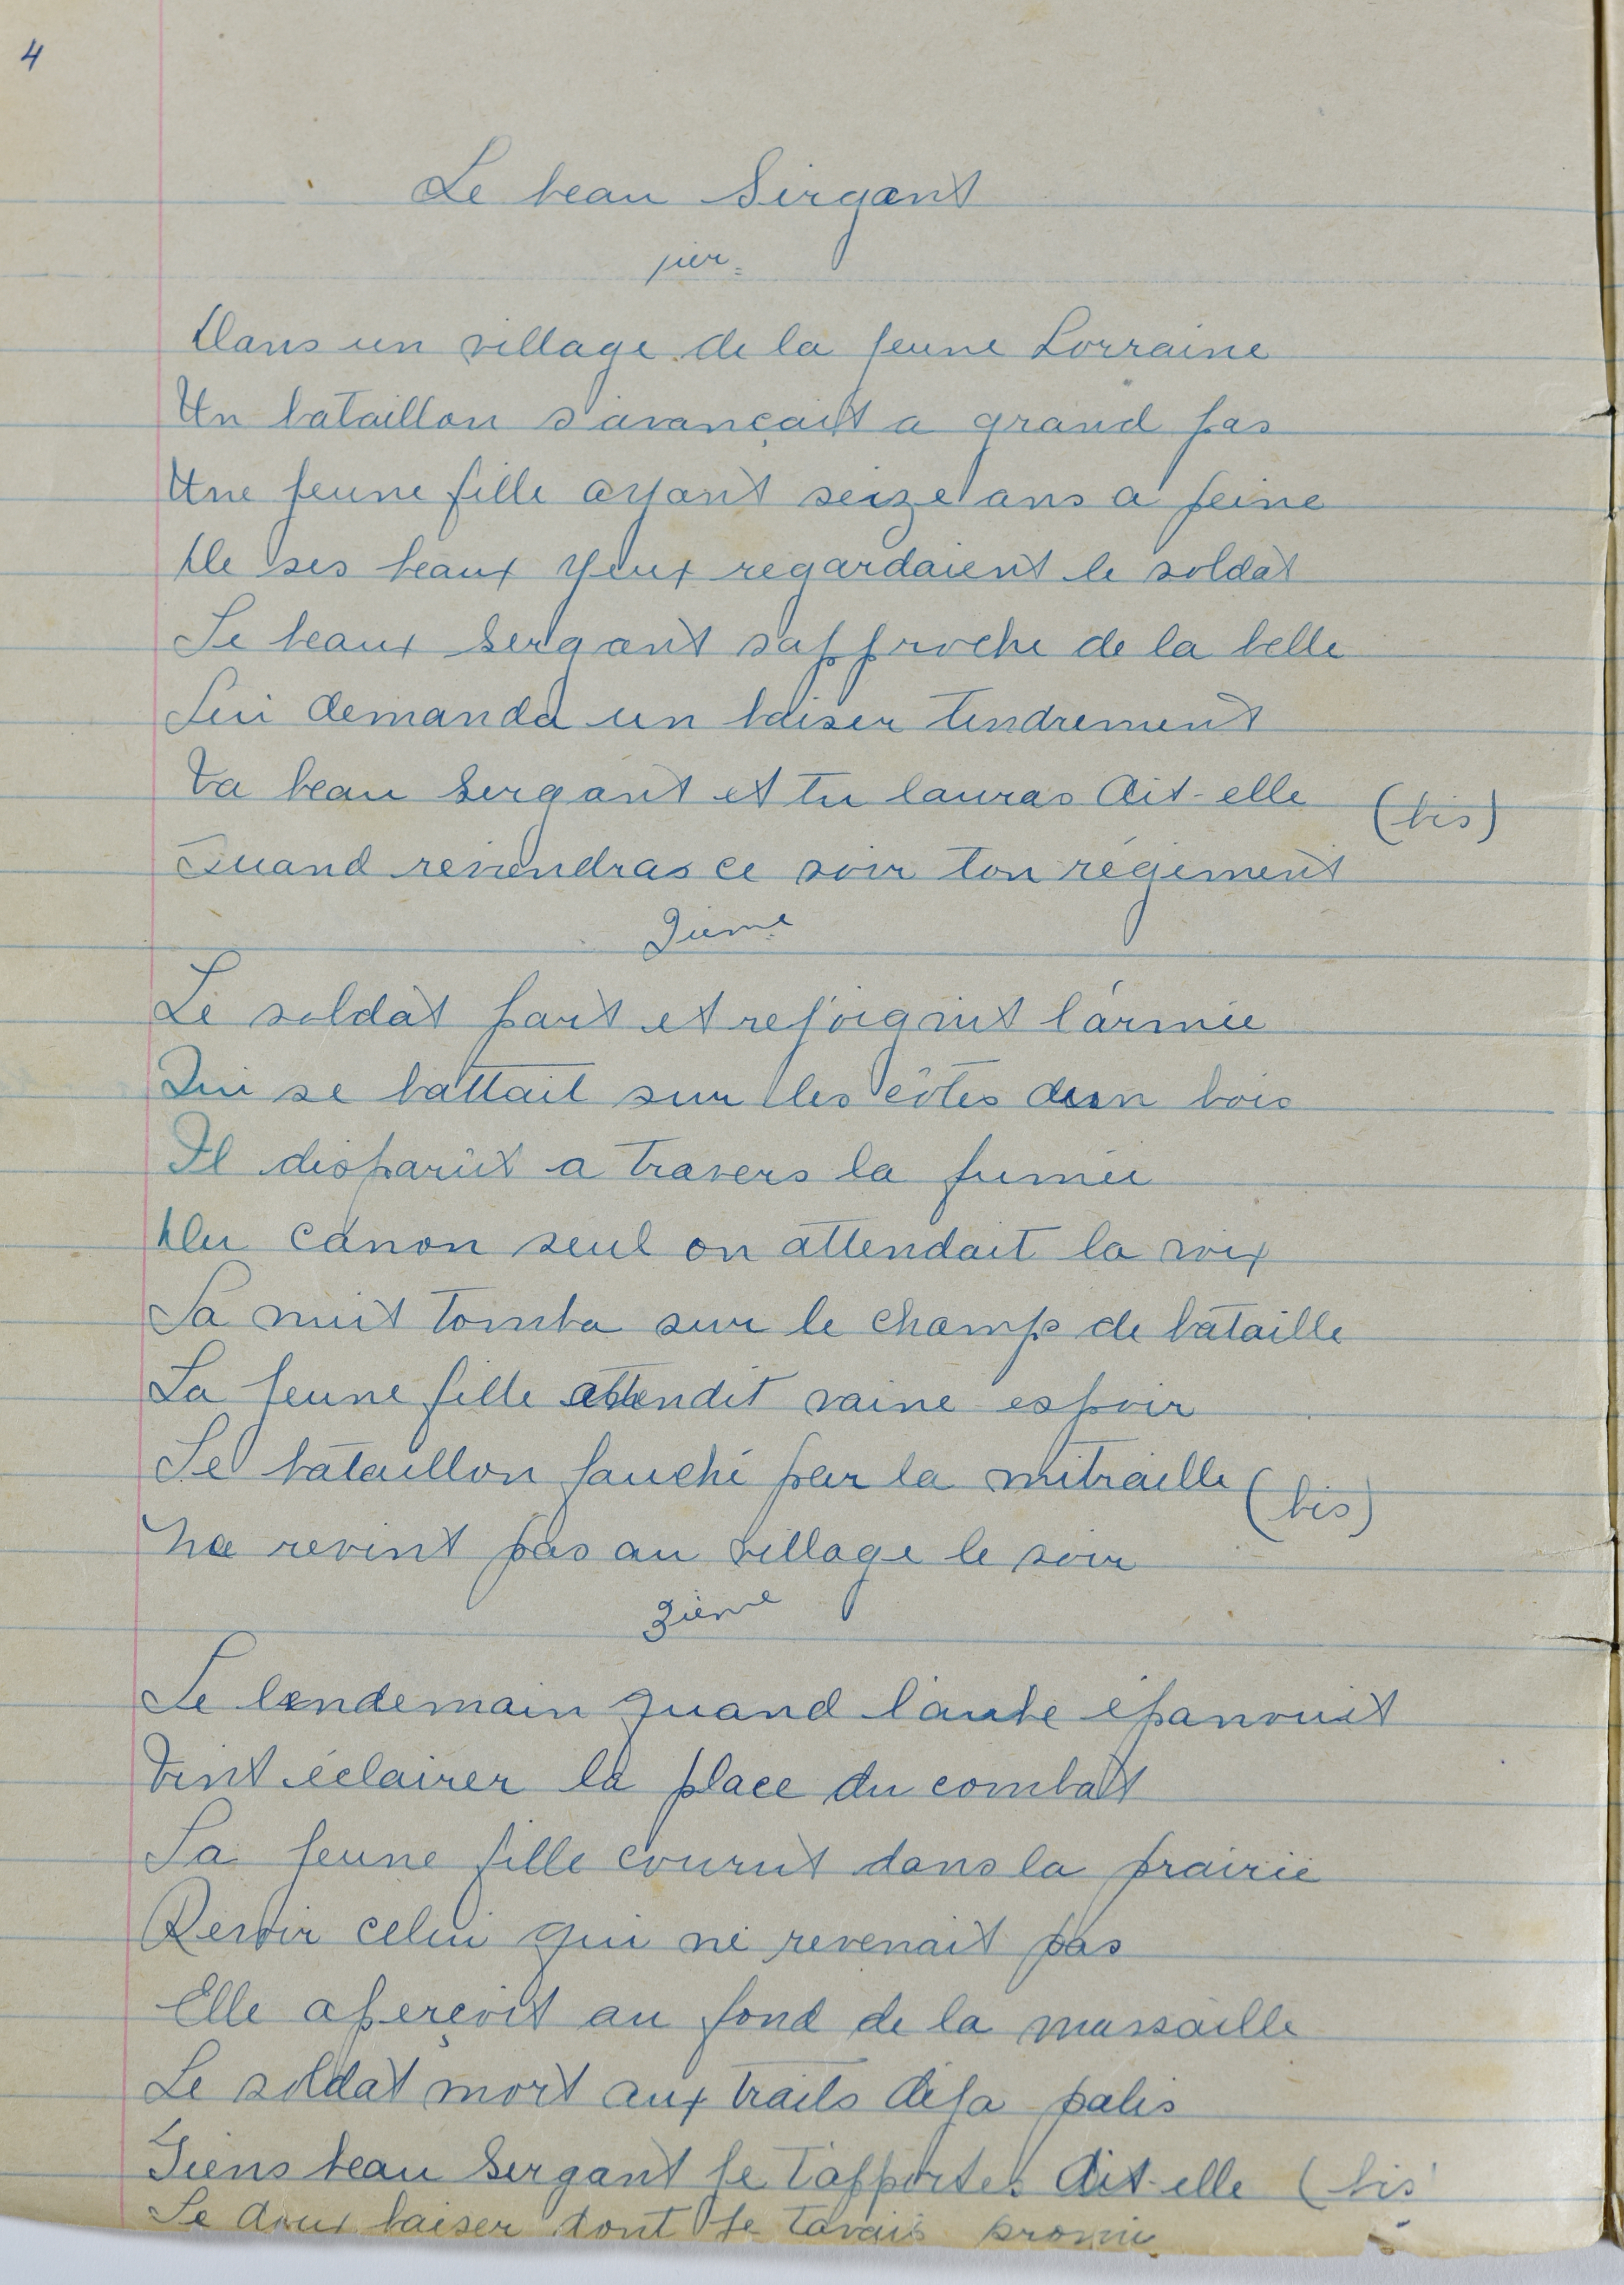 4
Le beau Sergant
1ier
Dans un village de la jeune Lorraine
Un bataillon s'avançait a grand pas
Une jeune fille ayant seize ans a peine
De ses beaux yeux regardaient le soldat
Le beaux Sergant s'approche de la belle
Lui demanda un baiser tendrement
Va beau Sergant et tu lauras dit-elle (bis)
Quand reviendras ce soir ton régiment
2ieme
Le soldat part et rejoignit l'armée
Qui se battait sur les côtes dun bois
Il disparût a travers la fumée
Du canon seul on attendait la voix
La nuit tomba sur le champ de bataille
La jeune fille attendit vaine espoir
Le bataillon fauché par la mitraille (bis)
Ne revint pas au village le soir
3ième
Le lendemain quand l'aube épanouit
Vint éclairer la place du combat
La jeune fille courut dans la prairie
Revoir celui qui ne revenait pas
Elle aperçoit au fond de la mussaille
Le soldat mort aux traits déja palis
Tiens beau Sergant je t'apportes dit-elle (bis
Le doux baiser dont je tavais promis